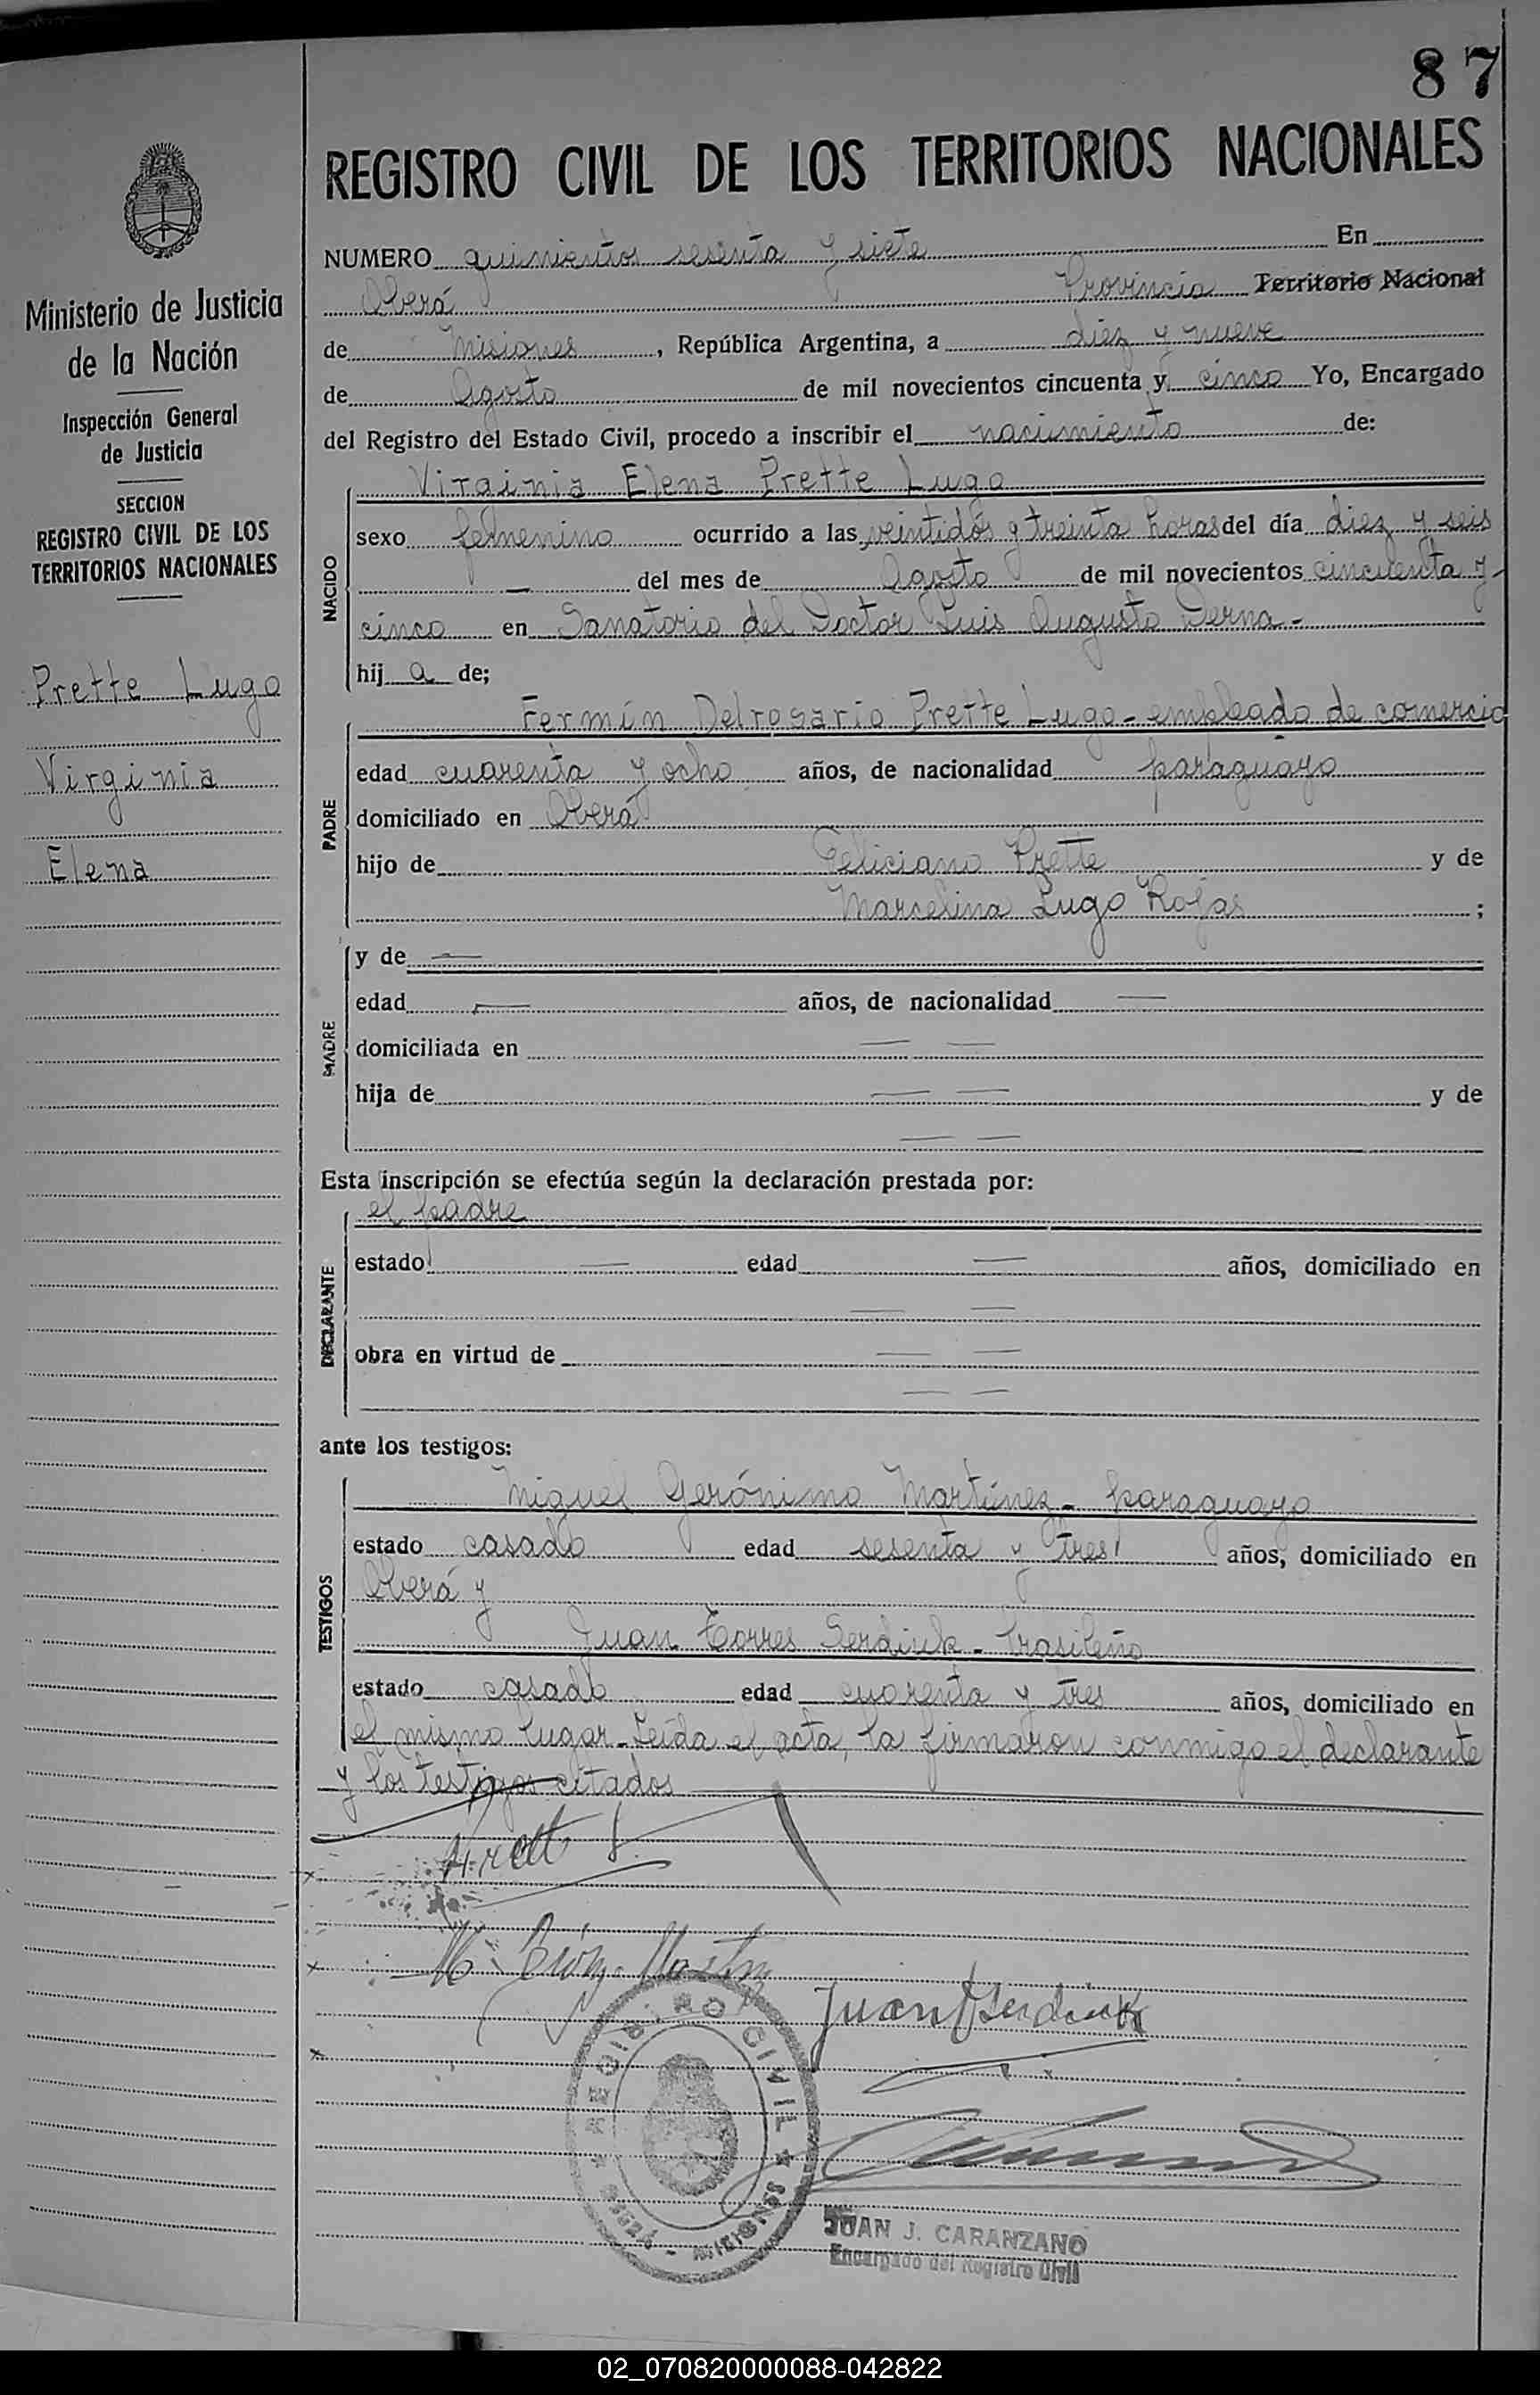 87
REGISTRO CIVIL DE LOS TERRITORIOS NACIONALES
Ministerio de Justicia
de la Nación
Inspección General
de Justicia
SECCION
REGISTRO CIVIL DE LOS
TERRITORIOS NACIONALES
Prette Lugo
Virginia
Elena
NUMERO quinientos sesenta y siete En
Oberá Provincia Territorio Nacional
de Misiones, República Argentina, a diez y nueve
de Agosto de mil novecientos cincuenta y cinco Yo, Encargado
del Registro del Estado Civil, procedo a inscribir el nacimiento de:
NACIDO
Virginia Elena Prette Lugo
sexo femenino ocurrido a las veintidós y treinta horas del día diez y seis
— del mes de Agosto de mil novecientos cincuenta y
cinco en Sanatorio del Doctor Luis Augusto Derna-
hij a de;
PADRE
Fermín Delrosario Prette Lugo - empleado de comercio
edad cuarenta y ocho años, de nacionalidad paraguayo
domiciliado en Oberá
hijo de Feliciano Prette y de
Marcelina Lugo Rojas ;
MADRE
y de —
edad — años, de nacionalidad —
domiciliada en — —
hija de — — y de
— —
Esta inscripción se efectúa según la declaración prestada por:
DECLARANTE
el padre
estado — edad — años, domiciliado en
— —
obra en virtud de — —
— —
ante los testigos:
TESTIGOS
Miguel Gerónimo Martínez - paraguayo
estado casado edad sesenta y tres años, domiciliado en
Oberá y
Juan Torres Serdiuk - brasileño
estado casado edad cuarenta y tres años, domiciliado en
el mismo lugar - Leída el acta, la firmaron conmigo el declarante
y los testigos citados
Juan T Serdiuk
REGISTRO CIVIL ★ MISIONES - OBERÁ ★
JUAN J. CARANZANO
Encargado del Registro Civil
02_070820000088-042822